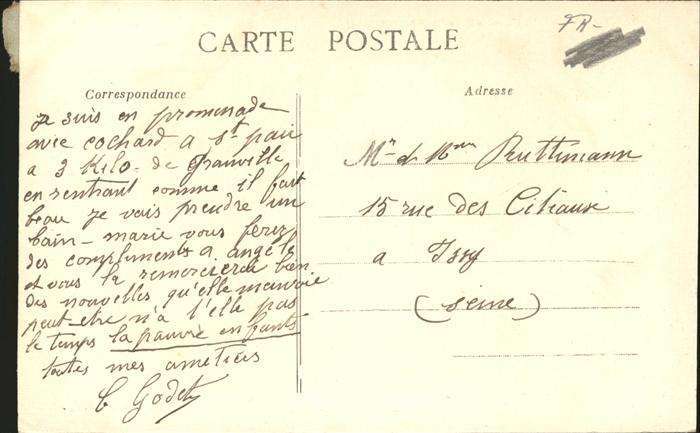 FR-
CARTE POSTALE
Correspondance
Adresse
Je suis en promenade
avec cochard a St pair
a 3 Kilo. de Granville
en rentrant comme il fait
beau je vais prendre un
bain-marie vous ferez
des compliments a angele
et vous la remercierai bien
des nouvelles qu'elle m'envoie
peut-etre n'a l'elle pas
le temps la pauvre enfants
toutes mes ametiers
C Godet
Mr & Mme Ruttimann
15 rue des Citeaux
a Issy
(seine)